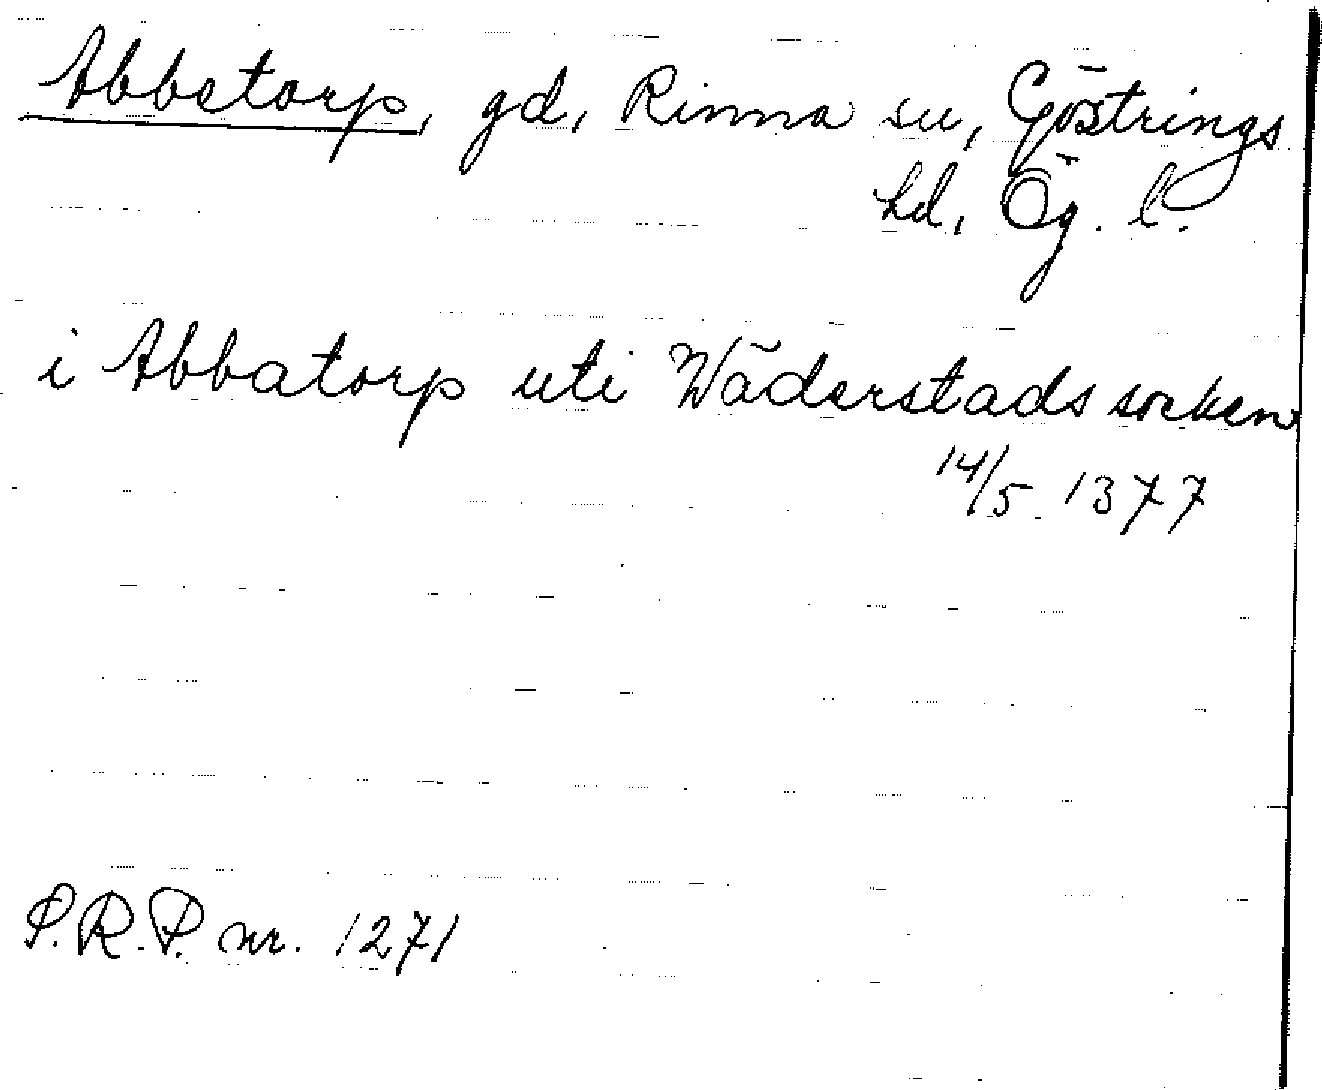 Abbetorp, gd, Rinna sn, Göstrings
hd, Ög. l.
i Abbatorp uti Wäderstads socken
14/5 1377
S.R.P. nr. 1271